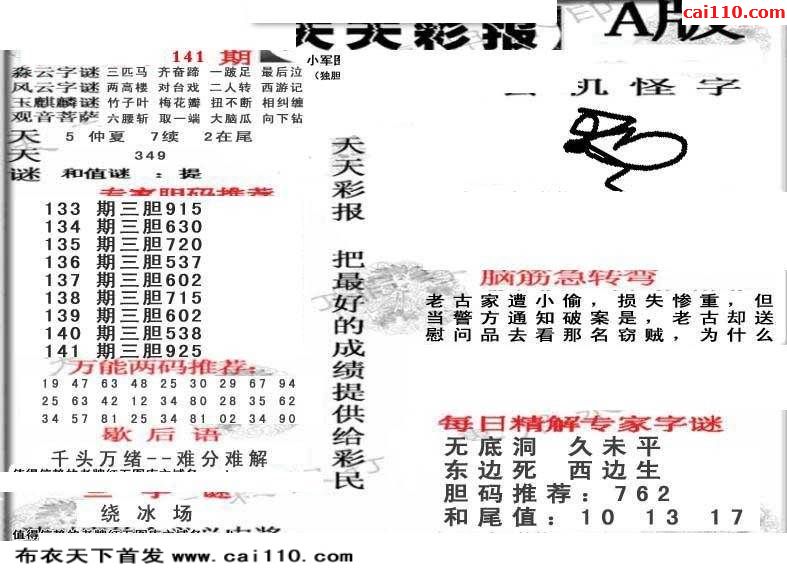 天天彩报 A版
cai110.com
141 期
小军
(独胆
森云字谜 三匹马 齐奋蹄 一跛足 最后泣
风云字谜 两高楼 对台戏 二人转 西游记
玉麒麟谜 竹子叶 梅花瓣 扭不断 相纠缠
观音菩萨 六腰斩 取一端 大脑瓜 向下钻
天 5 仲夏 7续 2在尾
天 349
谜 和值谜 : 提
专家胆码推荐
133 期三胆915
134 期三胆630
135 期三胆720
136 期三胆537
137 期三胆602
138 期三胆715
139 期三胆602
140 期三胆538
141 期三胆925
万能两码推荐:
19 47 63 48 25 30 29 67 94
25 63 42 12 34 80 28 35 62
34 57 81 25 34 81 02 34 90
歇后语
千头万绪--难分难解
字谜
绕冰场
天天彩报 把最好的成绩提供给彩民
玑怪字
脑筋急转弯
老古家遭小偷，损失惨重，但
当警方通知破案是，老古却送
慰问品去看那名窃贼，为什么
每日精解专家字谜
无底洞 久未平
东边死 西边生
胆码推荐：762
和尾值：10 13 17
布衣天下首发 www.cai110.com